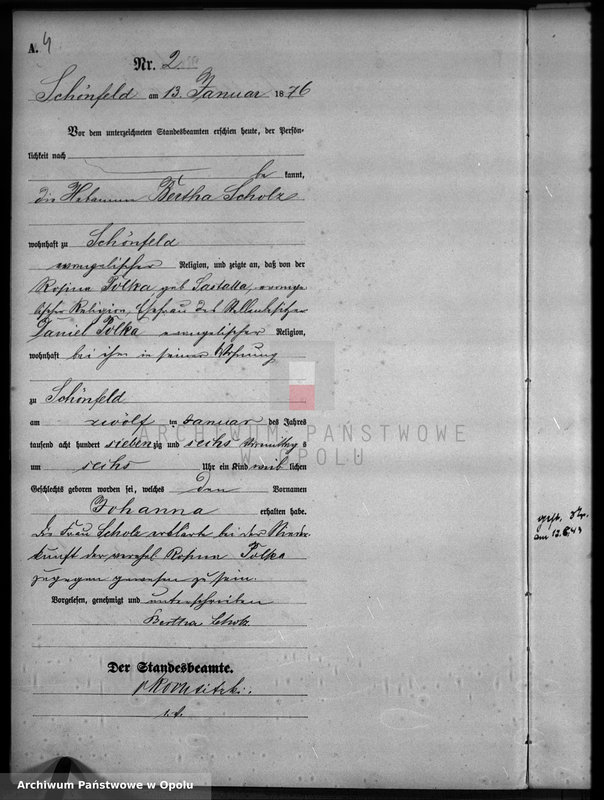 A. 4.
Nr. 2
Schönfeld am 13. Januar 1876
Vor dem unterzeichneten Standesbeamten erschien heute, der Persön-
lichkeit nach
be kannt,
die Hebamme Bertha Scholz
wohnhaft zu Schönfeld
evangelischer Religion, und zeigte an, daß von der
Rosina Polka geb. evange
lischer Religion, Ehefrau des Stellenbesitzer
Daniel Polka evangelischer Religion,
wohnhaft bei ihm in seiner Wohnung
zu Schönfeld
am zwölf ten Januar des Jahres
tausend acht hundert siebenzig und sechs Vormittag s
um sechs Uhr ein Kind weib lichen
Geschlechts geboren worden sei, welches den Vornamen
Johanna erhalten habe.
Die Frau Scholz erklärte bei der Nieder
kunft der verehel. Rosina Polka
zugegen gewesen zu sein.
Vorgelesen, genehmigt und unterschrieben
Bertha Scholz
Der Standesbeamte.
gest.
am 12.6.43
ARCHIWUM PAŃSTWOWE
W OPOLU
Archiwum Państwowe w Opolu